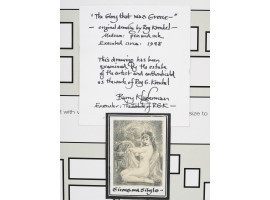 "The Glory that WAS Greece" -
- original drawing by Roy Krenkel
- Medium: pen and ink
Executed circa: 1948
This drawing has been
examined by the estate
of the artist and authenticated
as the work of Roy G. Krenkel
Barry Klugerman
Executor: The estate of R.G.K.
size to